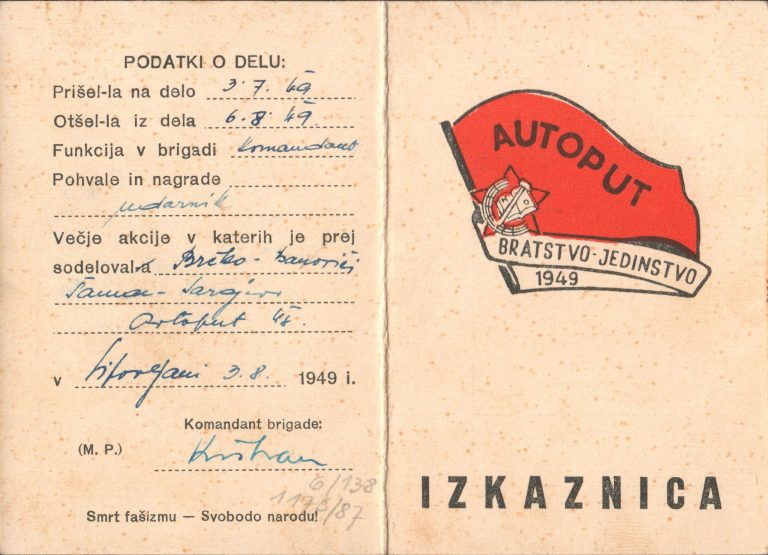 PODATKI O DELU:
Prišel-la na delo 3. 7. 49
Otšel-la iz dela 6. 8. 49.
Funkcija v brigadi Komandant
Pohvale in nagrade
udarnik
Večje akcije v katerih je prej
sodeloval-a Brčko-Banovići
Šamac-Sarajevo
Avtoput 48.
v 3.8. 1949 i.
Komandant brigade:
(M. P.)
6/138
1173/87
Smrt fašizmu — Svobodo narodu!
AUTOPUT
BRATSTVO-JEDINSTVO
1949
IZKAZNICA